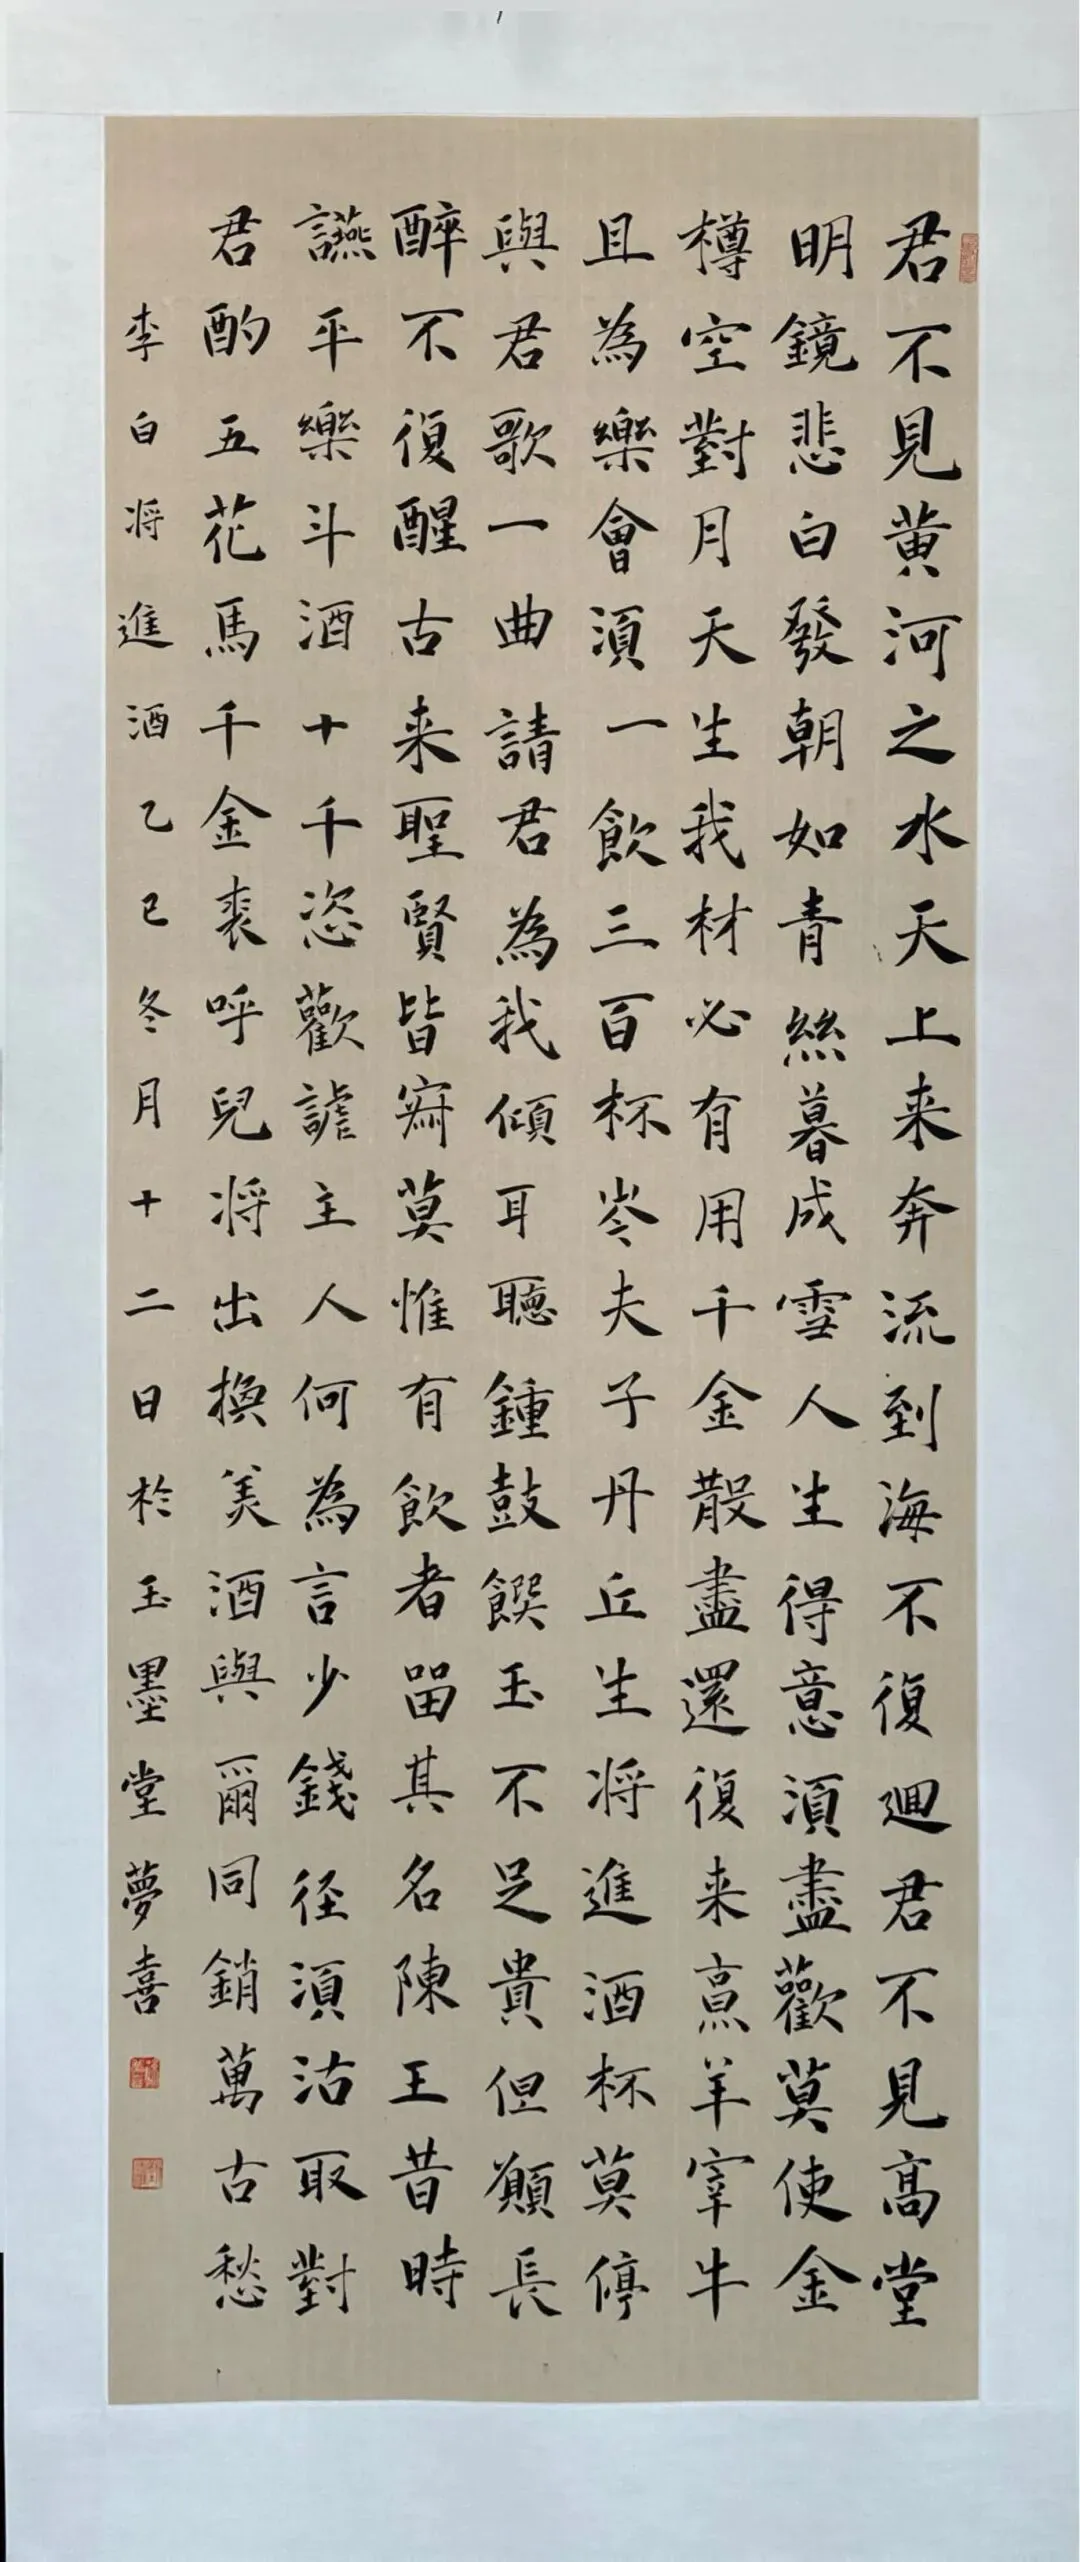 君不見黃河之水天上来奔流到海不復迴君不見高堂
明鏡悲白發朝如青絲暮成雪人生得意須盡歡莫使金
樽空對月天生我材必有用千金散盡還復来烹羊宰牛
且為樂會須一飲三百杯岑夫子丹丘生将進酒杯莫停
與君歌一曲請君為我傾耳聽鍾鼓饌玉不足貴但願長
醉不復醒古来聖賢皆寂莫惟有飲者留其名陳王昔時
讌平樂斗酒十千恣歡謔主人何為言少錢径須沽取對
君酌五花馬千金裘呼兒将出換美酒與爾同銷萬古愁
李白将進酒乙巳冬月十二日於玉墨堂夢喜